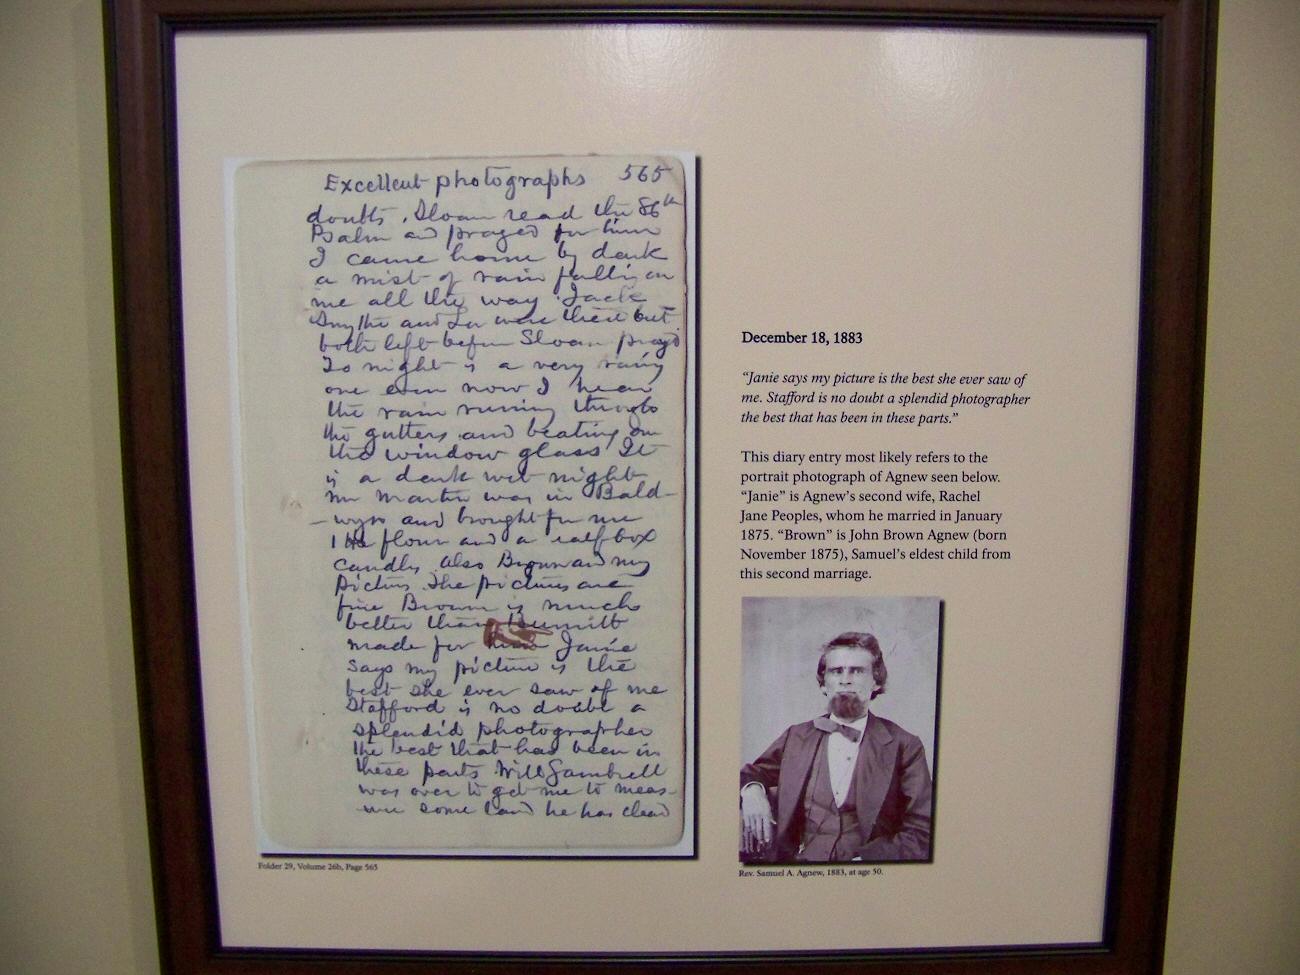 Excellent photographs 565
doubts. Sloan read the 86th
Psalm and prayed for him
I came home by dark
a mist of rain falling on
me all the way. Jack
Smythe and were there but
both left before Sloan prayd
To night is a very rainy
one even now I hear
the rain running through
the gutters and beating on
the window glass It
is a dark wet night
Mr Martin was in Bald-
-wyn and brought for me
flour and a box
candles also Brown and my
pictures. The pictures are
fine Brown is much
better than
made for Janie
says my picture is the
best she ever saw of me
Stafford is no doubt a
splendid photographer
the best that has been in
these parts Will Gambrell
was over to get me to meas-
ure some land he has cleard
Folder 29, Volume 26b, Page 565
December 18, 1883
“Janie says my picture is the best she ever saw of
me. Stafford is no doubt a splendid photographer
the best that has been in these parts.”
This diary entry most likely refers to the
portrait photograph of Agnew seen below.
“Janie” is Agnew’s second wife, Rachel
Jane Peoples, whom he married in January
1875. “Brown” is John Brown Agnew (born
November 1875), Samuel’s eldest child from
this second marriage.
Rev. Samuel A. Agnew, 1883, at age 50.